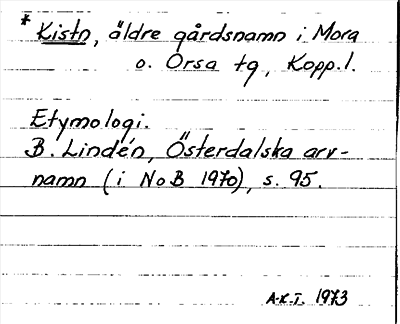 * Kistn, äldre gårdsnamn i Mora
o. Orsa tg, Kopp. l.
Etymologi.
B. Lindén, Österdalska arv-
namn (i NoB 1970), s. 95.
A-K.T. 1973